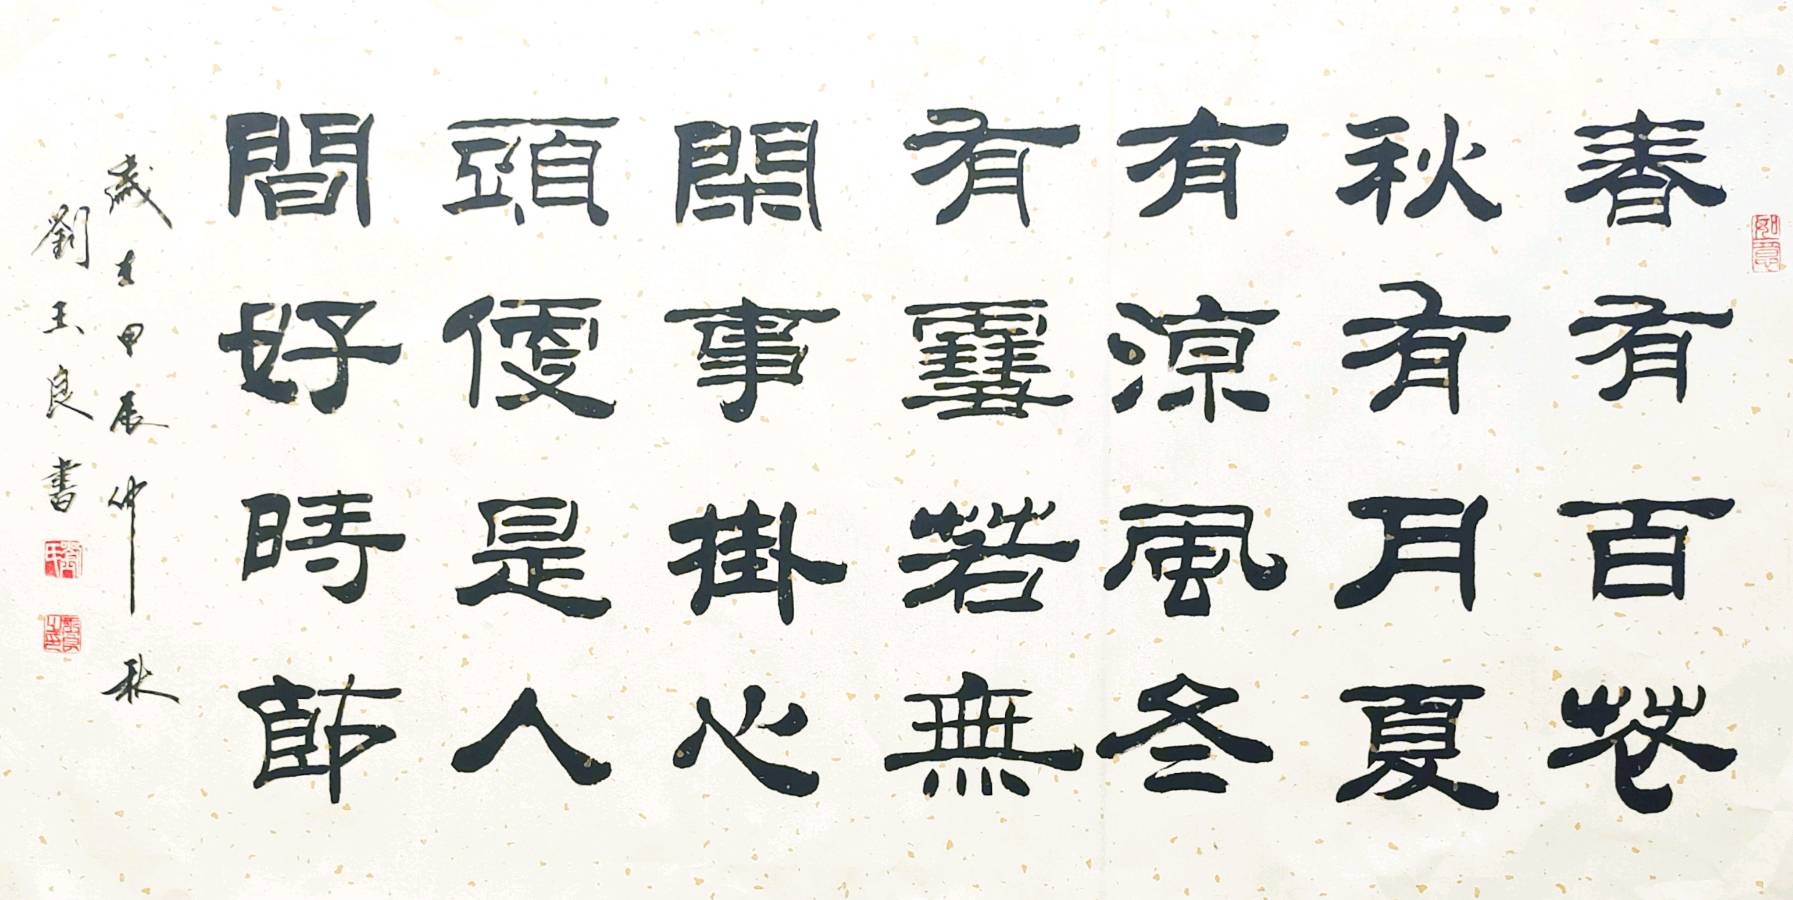 春有百花
秋有月夏
有涼風冬
有雪若無
閑事掛心
頭便是人
間好時節
歲在甲辰仲秋
劉玉良書
如意